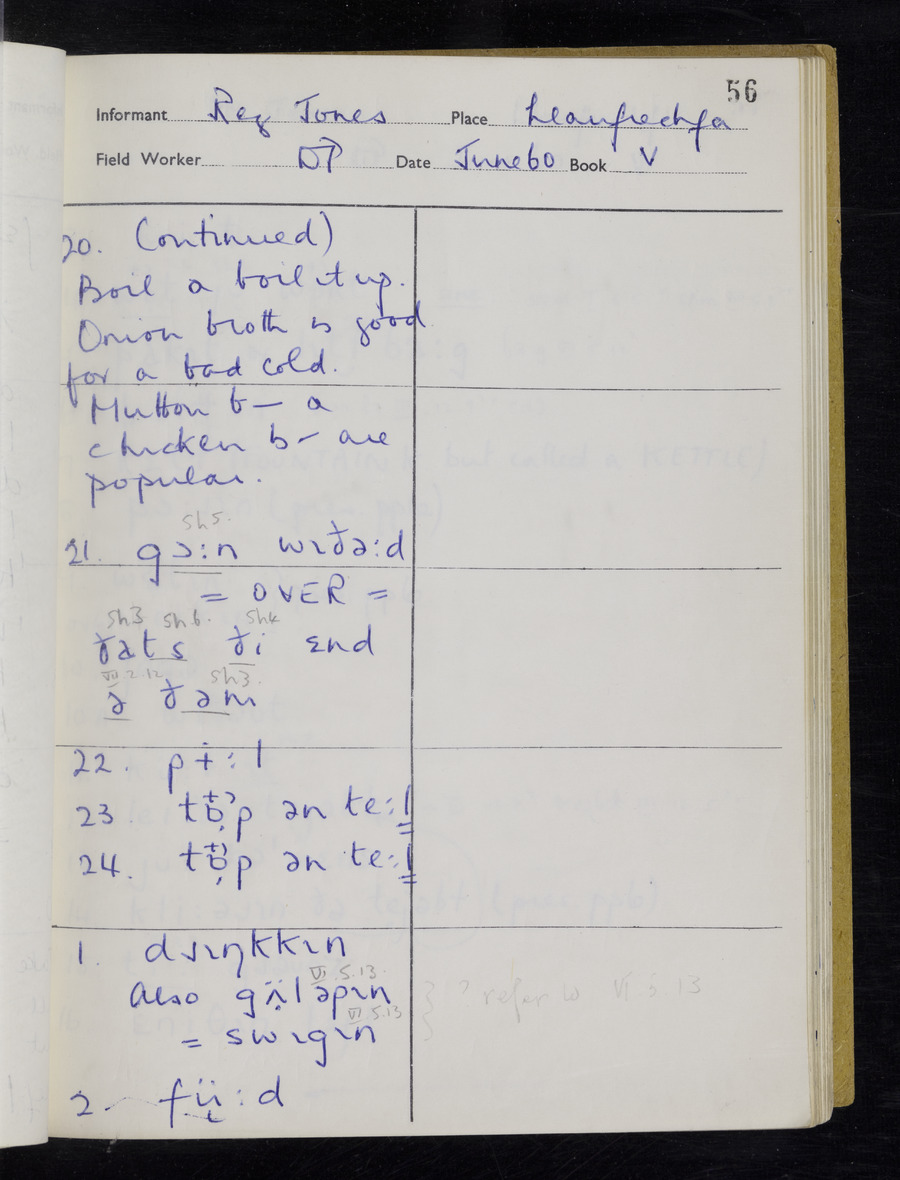 56
Informant Reg Jones Place Llanfrechfa
Field Worker DP Date June 60 Book V
20. (Continued)
Boil a boil it up.
Onion broth is good
for a bad cold.
Mutton b— a
chicken b— are
popular.
sh5.
21. gɔ:n wɪðə:d
= OVER =
sh3 sh6. sh4
ðats ði ɛnd
VII.2.12 sh3.
ə ðəm
22. pɨ:l
23 tɒp ən te:l
24. tɒp ən te:l
1. dɹɪŋkkɪn
VI.5.13.
Also gʌ̈ləpɪn } ? refer to VI 5 13
VI.5.13
= swɪgɪn
2. fü:d